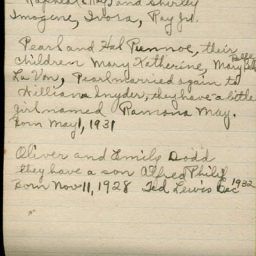 and Shirley
Imogene, Ivora, Ray Jr.
Pearl and Hal Punnroe, their
children Mary Katherine, Mary Belle
La Von, Pearl married again to
William Snyder, they have a little
girl named Ramona May.
Born May 1, 1931
Oliver and Emily Dodd
they have a son Alfred Philip
Born Nov 11, 1928 Ted Lewis Dec 1932